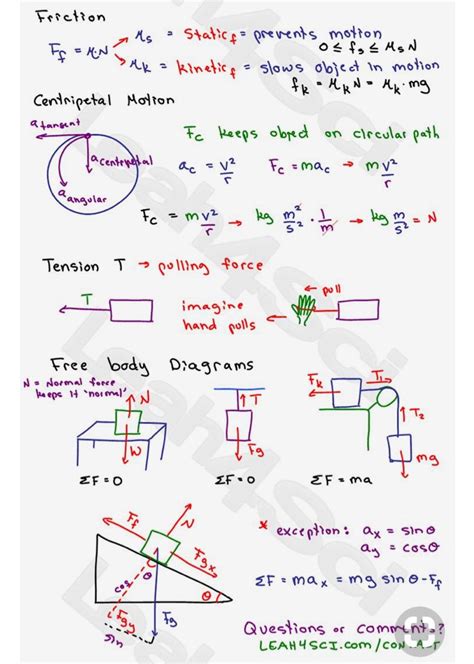 Friction
F_f = μ·N → μ_s = Static_f = prevents motion
0 ≤ f_s ≤ μ_s N
μ_k = kinetic_f = slows object in motion
f_k = μ_k N = μ_k · mg
Centripetal Motion
a tangent
a centripetal
a angular
F_c keeps obred on circular path
a_c = v²/r F_c = ma_c → m v²/r
F_c = m v²/r → kg m²/s² · 1/m → kg m/s² = N
Tension T → pulling force
T
imagine
hand pulls
← pull
Free body Diagrams
N = Normal force
keeps it 'normal'
N
W
ΣF = 0
T
F_g
ΣF = 0
F_k
T_1
T_2
mg
ΣF = ma
F_f
N
F_gx
cos
θ
θ
F_gy
sin
F_g
* exception: a_x = sin θ
a_y = cos θ
ΣF = ma_x = mg sin θ - F_f
Questions or comments?
LEAH4SCI.com/contact
Leah4Sci
Leah4Sci
Leah4Sci